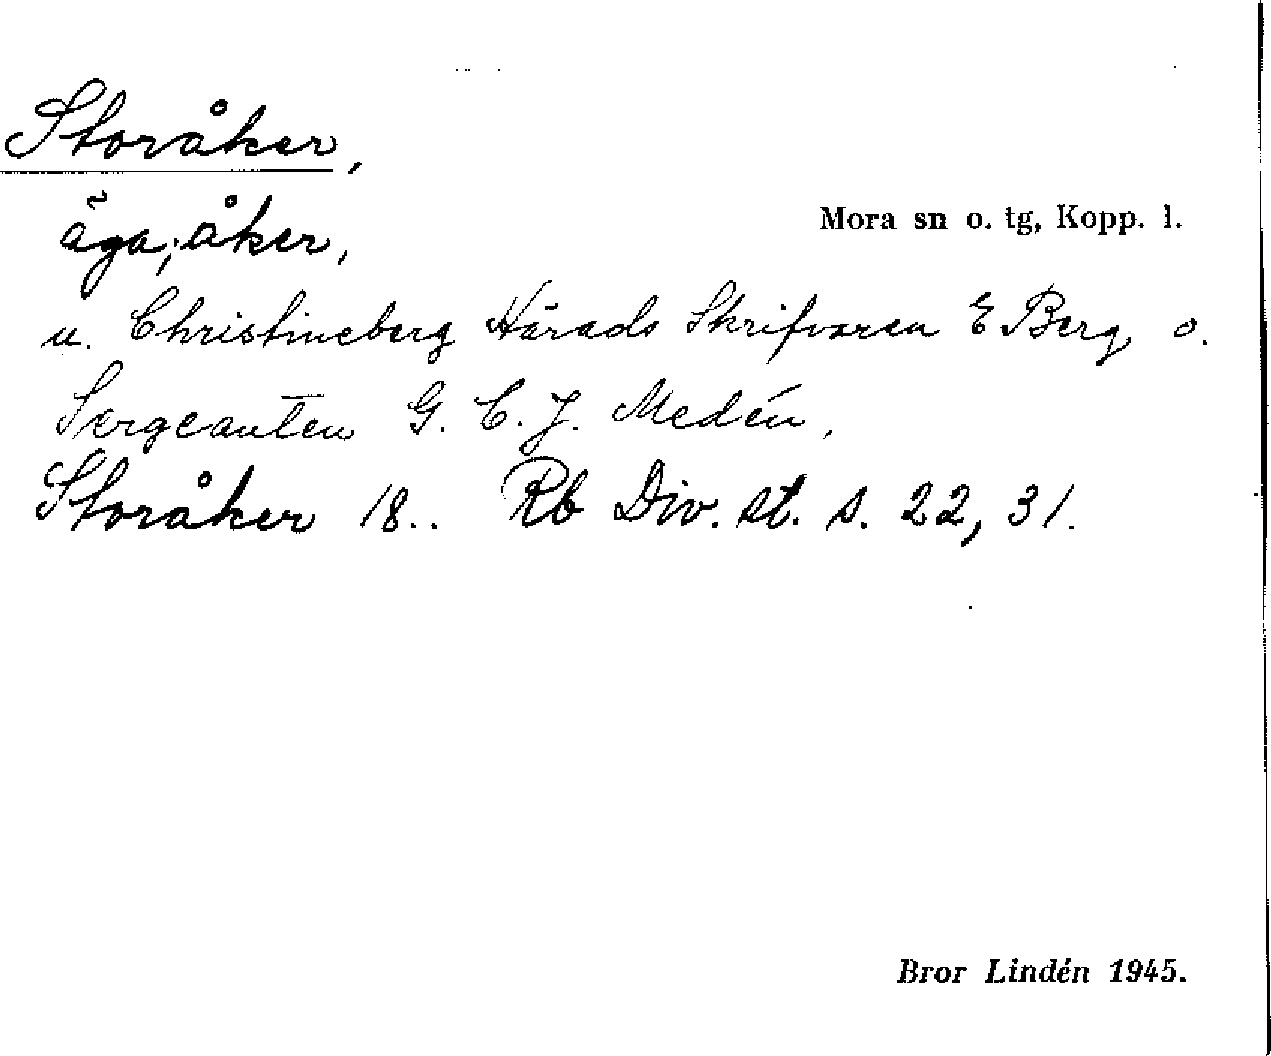 Storåker,
äga; åker,
Mora sn o. tg, Kopp. l.
u. Christineberg Härads Skrifvaren E Berg o.
Sergeanten G. C. J. Medén,
Storåker 18.. Rb Div. st. s. 22, 31.
Bror Lindén 1945.